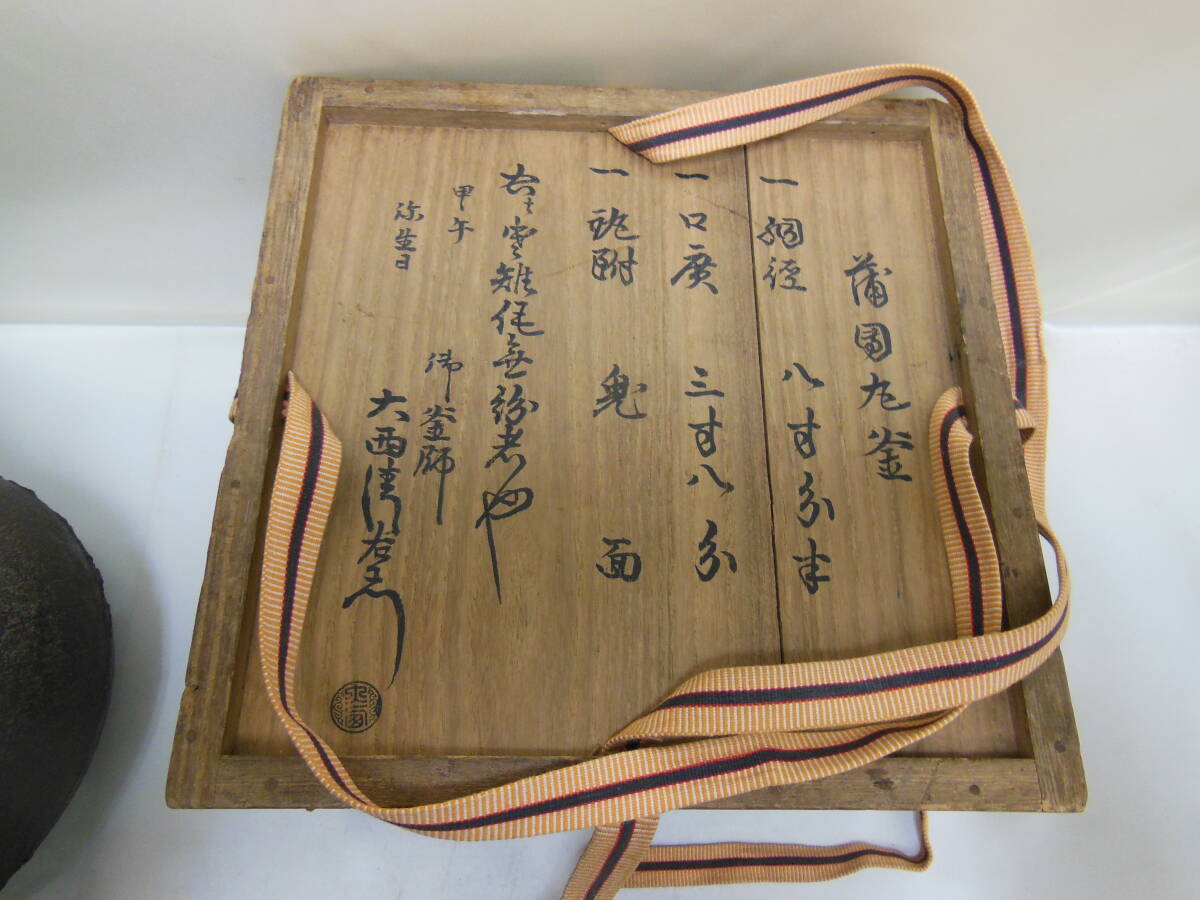 蒲團丸釜
一 胴径 八寸分半
一 口廣 三寸八分
一 鐶附 鬼面
無紛者也
甲午
弥生日
御釜師
大西清右衛門